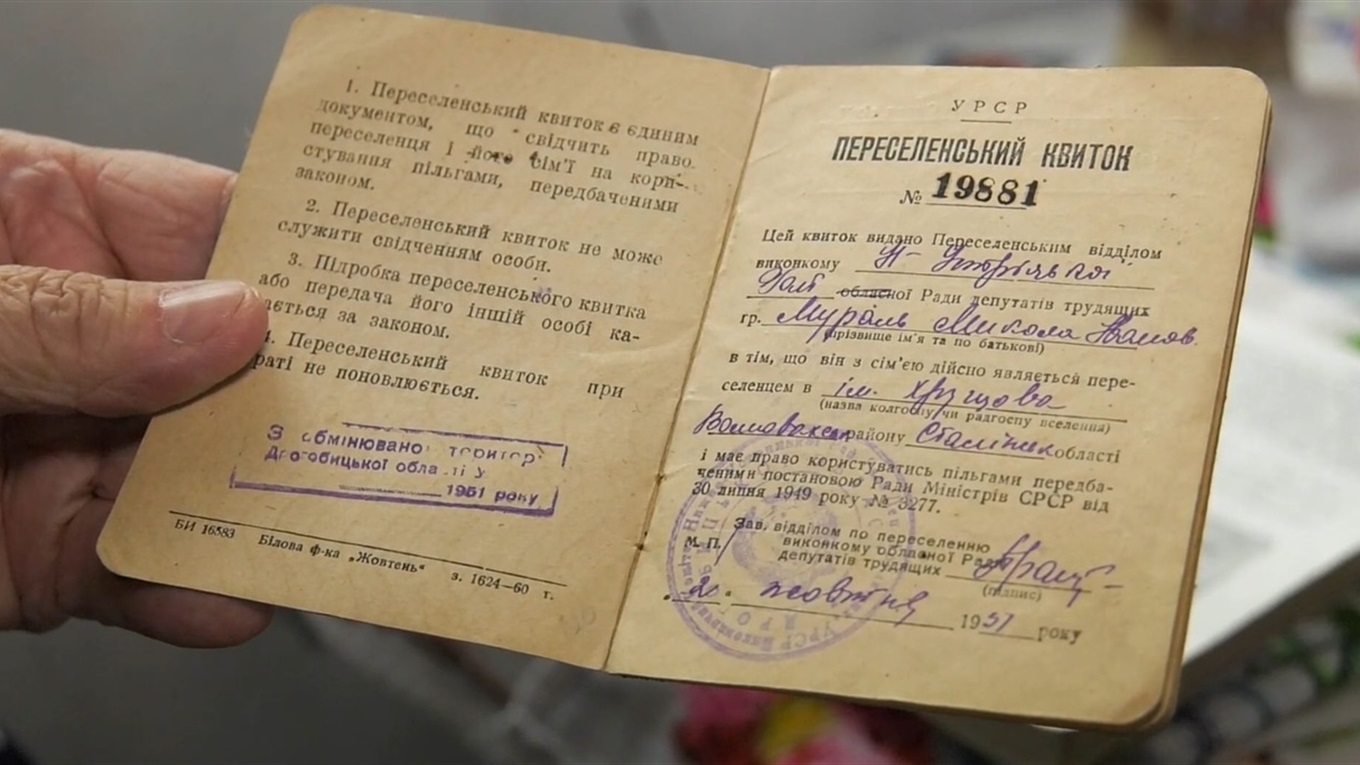 1. Переселенський квиток є єдиним
документом, що свідчить право
переселенця і його сім'ї на кори-
стування пільгами, передбаченими
законом.
2. Переселенський квиток не може
служити свідченням особи.
3. Підробка переселенського квитка
або передача його іншій особі ка-
ається за законом.
4. Переселенський квиток при
раті не поновлюється.
З обмінюваної територі
Дрогобицької області у
1951 року
БИ 16583 Білова ф-ка „Жовтень" з. 1624—60 т.
УРСР
ПЕРЕСЕЛЕНСЬКИЙ КВИТОК
№ 19881
Цей квиток видано Переселенським відділом
виконкому Н-
обласної Ради депутатів трудящих
гр. Мураль Микола Іванов
(прізвище ім'я та по батькові)
в тім, що він з сім'єю дійсно являється пере-
селенцем в ім. Хрущова
(назва колгоспу чи радгоспу вселення)
Волновахськ району Сталінськ області
і має право користуватись пільгами передба-
ченими постановою Ради Міністрів СРСР від
30 липня 1949 року № 3277.
Зав. відділом по переселенню
М. П. виконкому обласної Ради
депутатів трудящих
(підпис)
2 жовтня 1951 року